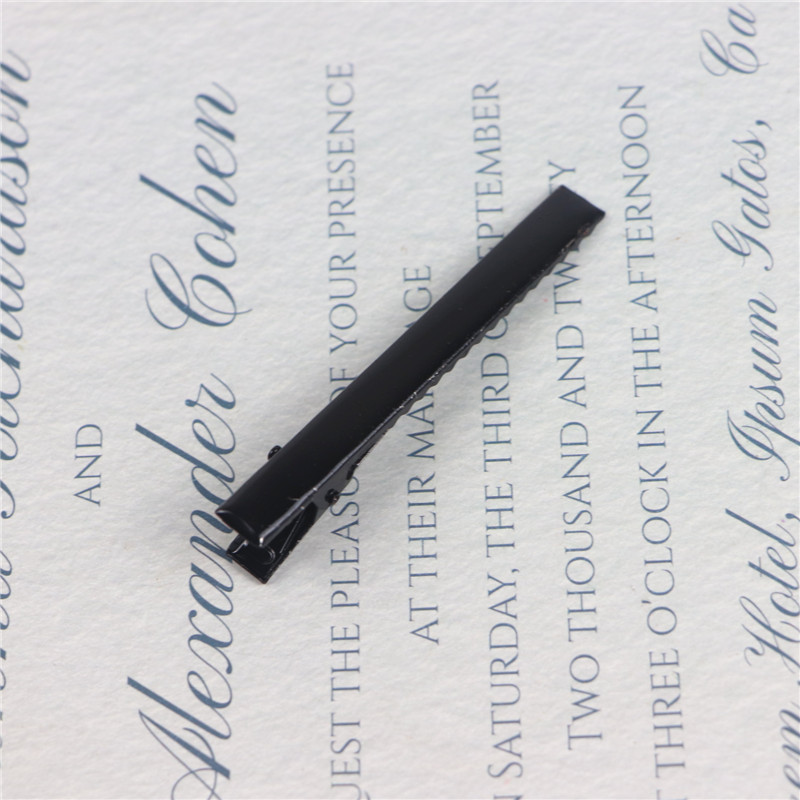 AND
Alexander Cohen
UEST THE PLEASU OF YOUR PRESENCE
AT THEIR MAR AGE
N SATURDAY, THE THIRD O EPTEMBER
TWO THOUSAND AND TW TY
T THREE O'CLOCK IN THE AFTERNOON
em Hotel, Ipsum Gatos, Ca